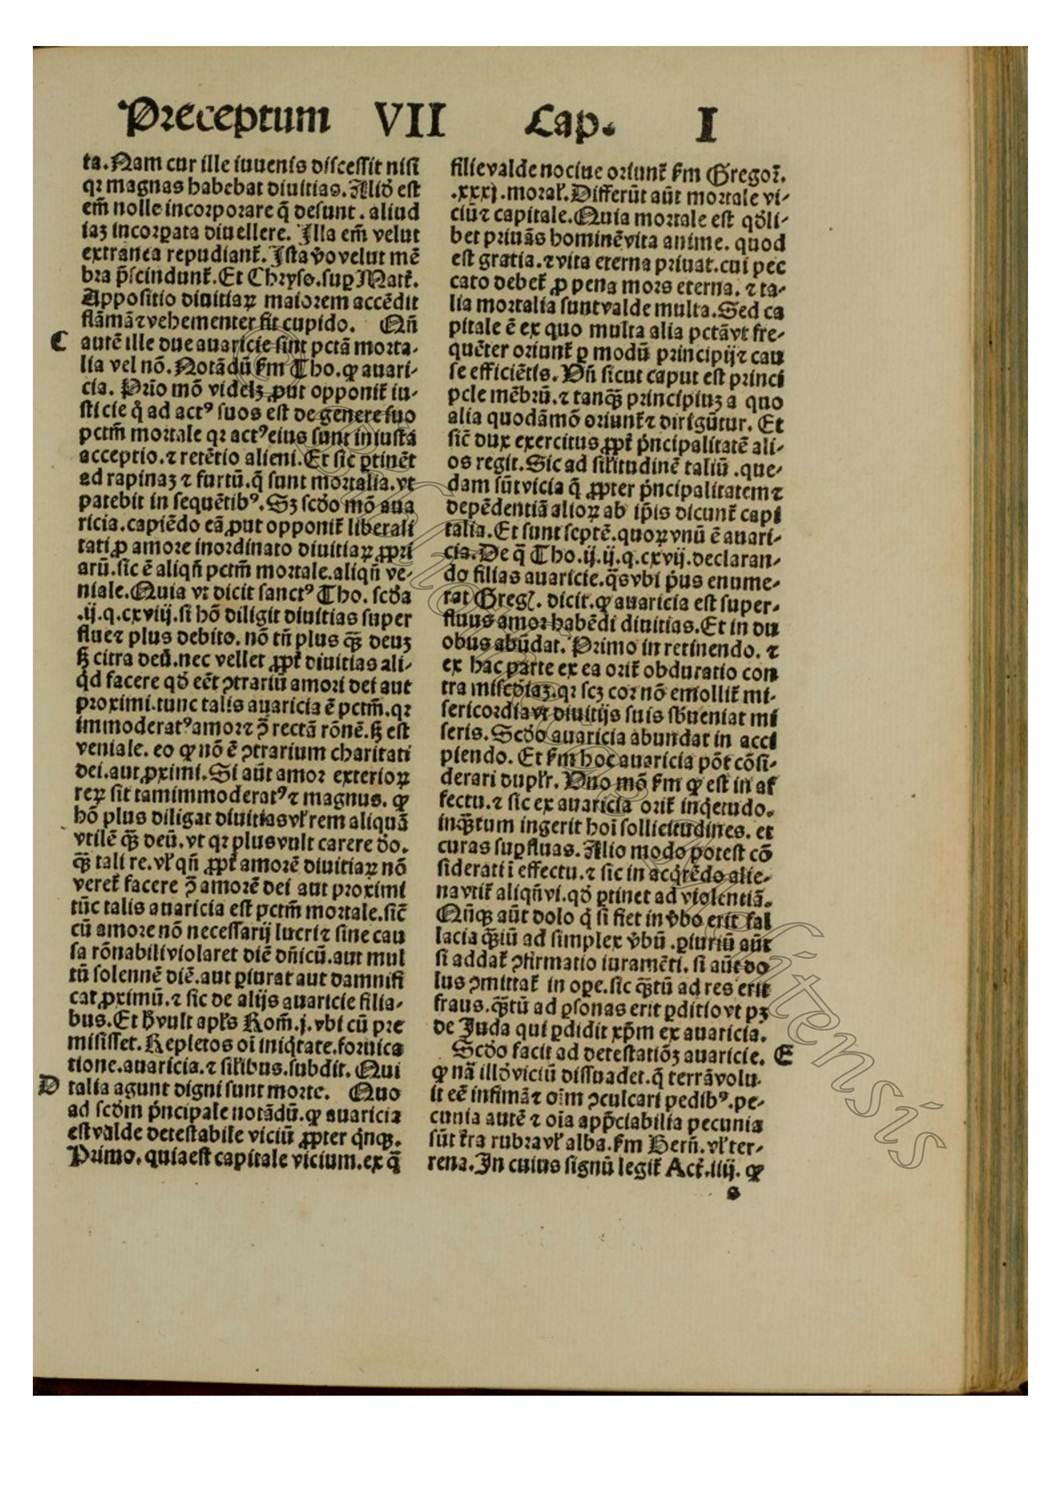 Preceptum VII Cap. I
ta. Nam cur ille iuuenis discessit nisi
qꝛ magnas habebat diuitias. Aliđ est
em̄ nolle incorporare q̄ desunt. aliud
iaꝫ incorꝑata diuellere. Illa em̄ velut
extranea repudiant᷑. Ista v̄o velut mē
bra p̄scindunt᷑. Et Chryso. suꝑ Matt᷑.
Appositio diuitiaꝝ maiorem accēdit
flāmā ⁊ vehementer fit cupido. Qn̄
C autē ille due auaricie sint pctā morta-
lia vel nō. Notādū fm̄ Tho. ꝙ auari-
cia. Prīo mō videlꝫ ꝓut opponit᷑ iu-
sticie q̄ ad actꝰ suos est de genere suo
pctm̄ mortale qꝛ actꝰ eius sunt iniusta
acceptio. ⁊ retētio alieni. Et sic ꝑtinēt
ad rapinaꝫ ⁊ furtū. q̄ sunt mortalia. vt
patebit in sequētibꝰ. Sꝫ scđo mō aua
ricia. capiēdo eā ꝓut opponit᷑ liberali
tati ꝓ amore inordinato diuitiaꝝ ꝓpri
arū. sic ē aliqn̄ pctm̄ mortale. aliqn̄ ve-
niale. Quia vt dicit sanctꝰ Tho. scđa
.ij. q. cxviij. si hō diligit diuitias super
flue ⁊ plus debito. nō tn̄ plus qꝫ̄ deuꝫ
sꝫ citra deū. nec vellet ꝓpt᷑ diuitias ali-
qd̄ facere qđ eēt ꝯtrariū amori dei aut
proximi. tunc talis auaricia ē pctm̄. qꝛ
immoderatꝰ amor ⁊ p̄ rectā rōnē. sꝫ est
veniale. eo ꝙ nō ē ꝯtrarium charitati
dei. aut ꝓximi. Si aūt amor exterioꝝ
reꝝ sit tam immoderatꝰ ⁊ magnus. ꝙ
hō plus diligat diuitias vl᷑ rem aliquā
vtilē qꝫ̄ deū. vt qꝛ plus vult carere đo.
qꝫ̄ tali re. vl᷑ qn̄ ꝓpt᷑ amorē diuitiaꝝ nō
veret᷑ facere p̄ amorē dei aut proximi
tūc talis auaricia est pctm̄ mortale. sic̄
cū amore nō necessarij lucri ⁊ sine cau
sa rōnabili violaret diē dn̄icū. aut mul
tū solennē diē. aut ꝑiurat aut damnifi
cat ꝓximū. ⁊ sic de alijs auaricie filia-
bus. Et h̄ vult apl̄s Rom̄. j. vbi cū pre
misisset. Repletos oī iniq̄tate. fornica
tione. auaricia. ⁊ sil̄ibus. subdit. Qui
D talia agunt digni sunt morte. Quo
ad scđm p̄ncipale notādū. ꝙ auaricia
est valde detestabile viciū ꝓpter qn̄qꝫ.
Primo. quia est capitale vicium. ex q̄
filie valde nociue oriunt᷑ fm̄ Gregor᷑.
.xxxj. moral᷑. Differūt aūt mortale vi-
ciū ⁊ capitale. Quia mortale est qđli-
bet priuās hominē vita anime. quod
est gratia. ⁊ vita eterna priuat. cui pec
cato debet᷑ ꝓ pena mors eterna. ⁊ ta-
lia mortalia sunt valde multa. Sed ca
pitale ē ex quo multa alia pctā vt fre-
quēter oriunt᷑ ꝑ modū principij ⁊ cau
se efficiētis. Vn̄ sicut caput est princi
pele mēbrū. ⁊ tanqꝫ̄ principiuꝫ a quo
alia quodāmō oriunt᷑ ⁊ dirigūtur. Et
sic̄ dux exercitus ꝓpt᷑ p̄ncipalitatē ali-
os regit. Sic ad sil̄itudinē taliū. que-
dam sūt vicia q̄ ꝓpter p̄ncipalitatem ⁊
depēdentiā alioꝝ ab ip̄is dicunt᷑ capi
talia. Et sunt septē. quoꝝ vnū ē auari-
cia. De q̄ Tho. ij. ij. q. cxvij. declaran-
do filias auaricie. q̄s vbi p̄us enume-
rat Greg. dicit. ꝙ auaricia est super-
fluus amor habēdi diuitias. Et in du
obus abūdat. Primo in retinendo. ⁊
ex hac parte ex ea orit᷑ obduratio con
tra miscđiaꝫ. qꝛ scꝫ cor nō emollit᷑ mi-
sericordia vt diuitijs suis sb̄ueniat mi
seris. Scđo auaricia abundat in acci
piendo. Et fm̄ hoc auaricia pōt cōsi-
derari dupl᷑r. Vno mō fm̄ ꝙ est in af
fectu. ⁊ sic ex auaricia orit᷑ inq̄etudo.
inqꝫ̄tum ingerit hoī sollicitudines. et
curas suꝑfluas. Alio modo potest cō
siderari ī effectu. ⁊ sic in acq̄rēdo alie-
na vtit᷑ aliqn̄ vi. qđ ꝑtinet ad violentiā.
Qn̄qꝫ aūt dolo q̄ si fiet in v̄bo erit fal
lacia qꝫ̄tū ad simplex v̄bū. ꝑiuriū aūt
si addat᷑ ꝯfirmatio iuramēti. si aūt do
lus ꝯmittat᷑ in oꝑe. sic qꝫ̄tū ad res erit
fraus. qꝫ̄tū ad ꝑsonas erit ꝑditio vt pꝫ
de Juda qui ꝑdidit xp̄m ex auaricia.
Scđo facit ad detestatiōꝫ auaricie. E
ꝙ nā illđ viciū dissuadet. q̄ terrā volu-
it eē infimā ⁊ oīm ꝯculcari pedibꝰ. pe-
cunia autē ⁊ oīa app̄ciabilia pecunia
sūt t᷑ra rubra vl᷑ alba. fm̄ Bern̄. vl᷑ ter-
rena. In cuius signū legit᷑ Act᷑. iiij. ꝙ
s